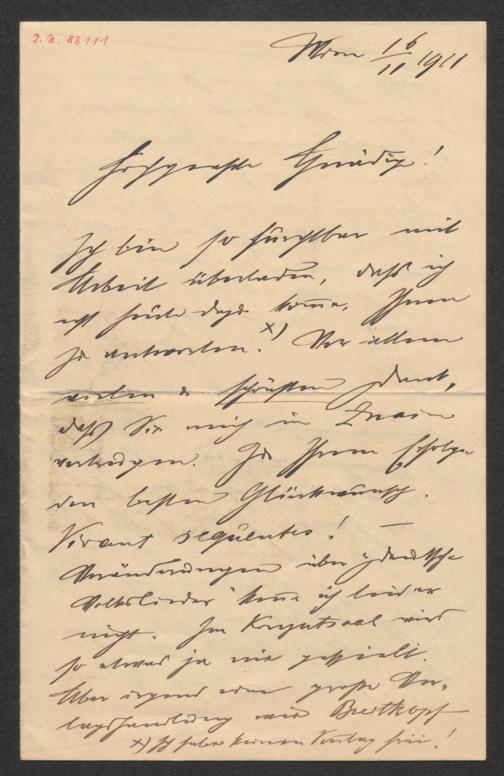 I. N. 83111
Wien 16/11 1911
Hochgeehrte Gnädige!
Ich bin so furchtbar mit
Arbeit überladen, daß ich
erst heute dazu komme, Ihnen
zu antworten. x) Vor allem
vielen & schönsten Dank,
daß Sie mich in Znaim
vortrugen. Zu Ihrem Erfolge
den besten Glückwunsch.
Vivant sequentes! —
Veränderungen über "deutsche
Volkslieder" kenne ich leider
nicht. Im Konzertsaal wird
so etwas ja nie gespielt.
Aber irgend eine große Ver-
lagshandlung wie Breitkopf
x) Ich habe keinen Vortag frei!